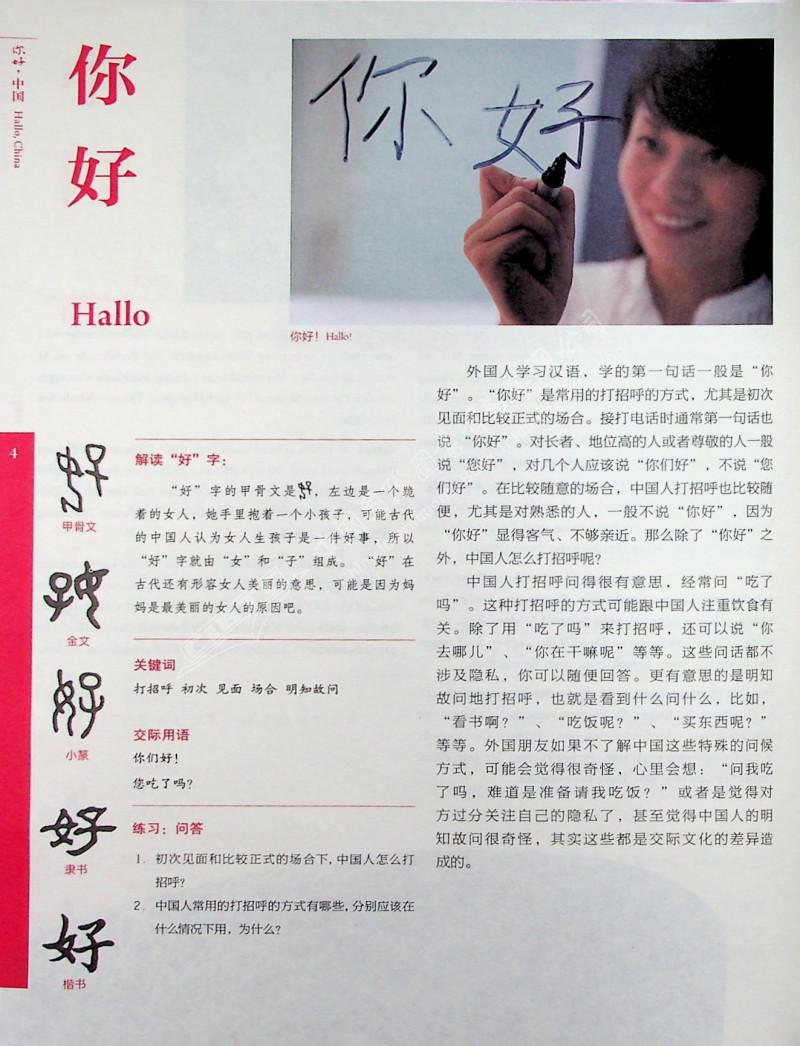 你好·中国 Hallo, China
你
好
Hallo
你好
你好！Hallo!
4
甲骨文
金文
小篆
好
隶书
好
楷书
解读“好”字：
“好”字的甲骨文是，左边是一个跪
着的女人，她手里抱着一个小孩子，可能古代
的中国人认为女人生孩子是一件好事，所以
“好”字就由“女”和“子”组成。“好”在
古代还有形容女人美丽的意思，可能是因为妈
妈是最美丽的女人的原因吧。
关键词
打招呼 初次 见面 场合 明知故问
交际用语
你们好！
您吃了吗？
练习：问答
1. 初次见面和比较正式的场合下，中国人怎么打
招呼？
2. 中国人常用的打招呼的方式有哪些，分别应该在
什么情况下用，为什么？
外国人学习汉语，学的第一句话一般是“你
好”。“你好”是常用的打招呼的方式，尤其是初次
见面和比较正式的场合。接打电话时通常第一句话也
说“你好”。对长者、地位高的人或者尊敬的人一般
说“您好”，对几个人应该说“你们好”，不说“您
们好”。在比较随意的场合，中国人打招呼也比较随
便，尤其是对熟悉的人，一般不说“你好”，因为
“你好”显得客气、不够亲近。那么除了“你好”之
外，中国人怎么打招呼呢？
中国人打招呼问得很有意思，经常问“吃了
吗”。这种打招呼的方式可能跟中国人注重饮食有
关。除了用“吃了吗”来打招呼，还可以说“你
去哪儿”、“你在干嘛呢”等等。这些问话都不
涉及隐私，你可以随便回答。更有意思的是明知
故问地打招呼，也就是看到什么问什么，比如，
“看书啊？”、“吃饭呢？”、“买东西呢？”
等等。外国朋友如果不了解中国这些特殊的问候
方式，可能会觉得很奇怪，心里会想：“问我吃
了吗，难道是准备请我吃饭？”或者是觉得对
方过分关注自己的隐私了，甚至觉得中国人的明
知故问很奇怪，其实这些都是交际文化的差异造
成的。